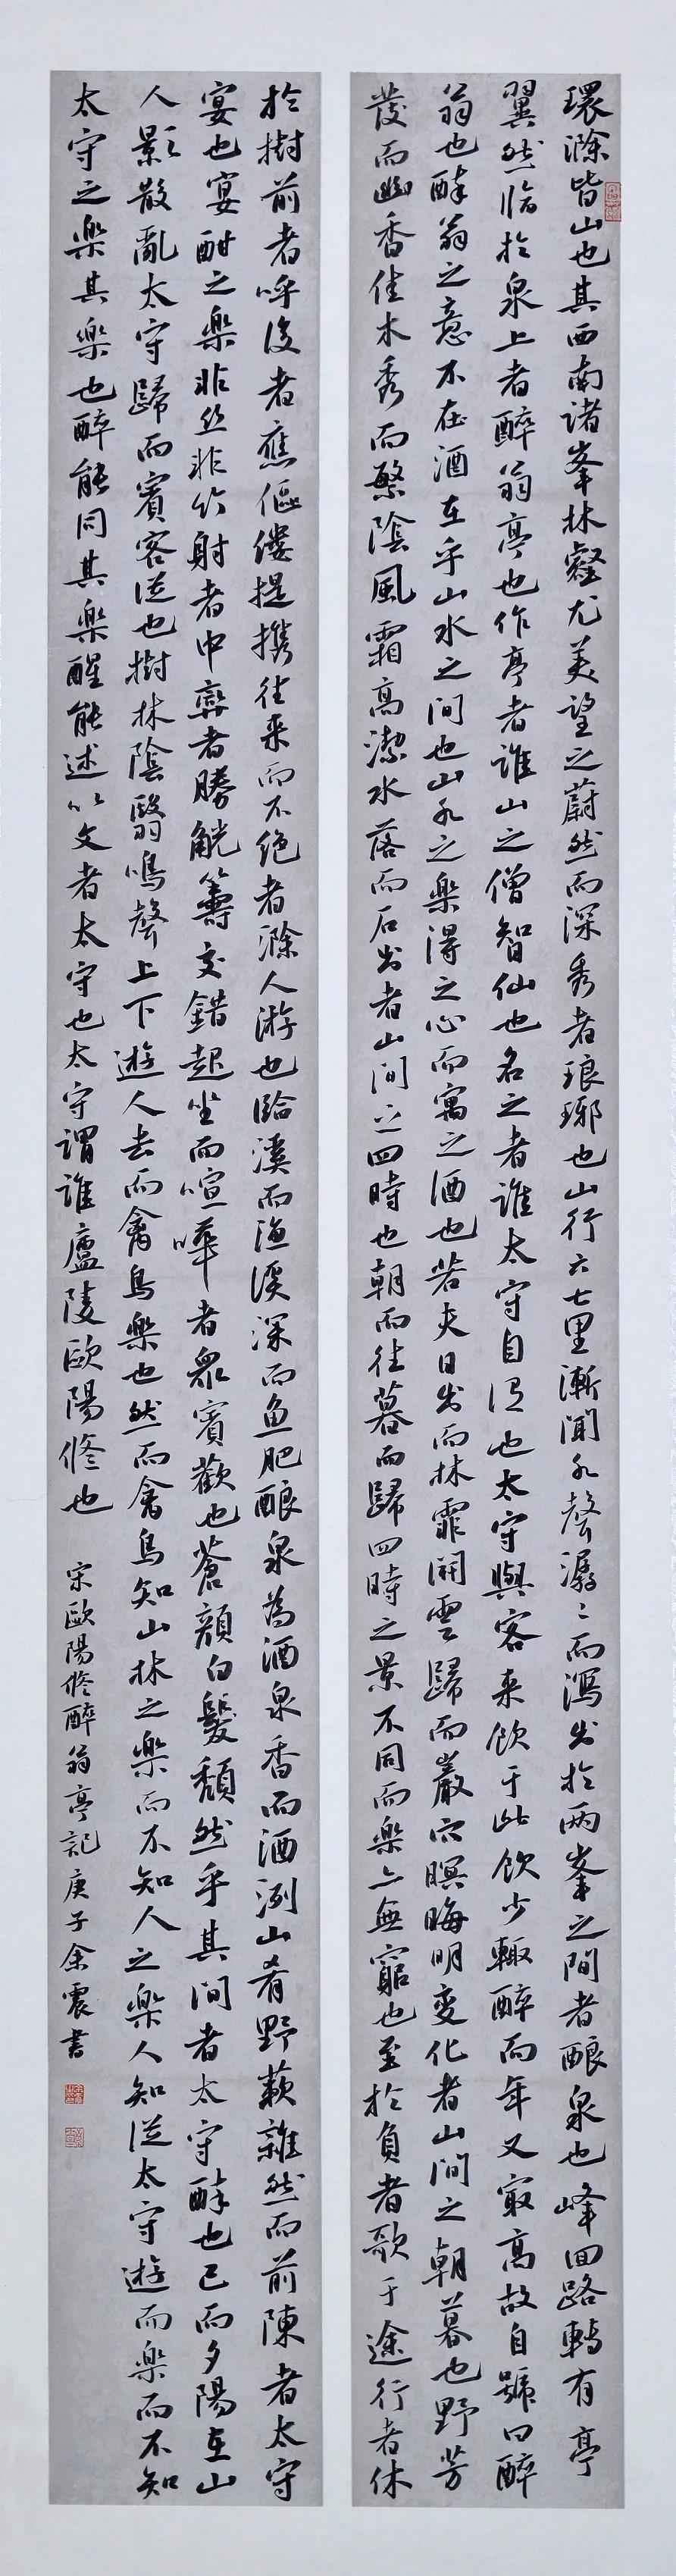 環滁皆山也其西南諸峯林壑尤美望之蔚然而深秀者琅琊也山行六七里漸聞水聲潺〻而瀉出於两峯之間者釀泉也峰回路轉有亭
翼然臨於泉上者醉翁亭也作亭者誰山之僧智仙也名之者誰太守自謂也太守與客来飲于此飲少輒醉而年又最高故自號曰醉
翁也醉翁之意不在酒在乎山水之間也山水之樂得之心而寓之酒也若夫日出而林霏開雲歸而巖穴暝晦明變化者山間之朝暮也野芳
發而幽香佳木秀而繁陰風霜高潔水落而石出者山間之四時也朝而往暮而歸四時之景不同而樂亦無窮也至於負者歌于途行者休
於樹前者呼後者應傴僂提攜往来而不绝者滁人游也臨溪而漁溪深而魚肥釀泉為酒泉香而酒洌山肴野蔌雜然而前陳者太守
宴也宴酣之樂非丝非竹射者中弈者勝觥籌交錯起坐而喧嘩者眾賓歡也蒼顔白髮頹然乎其间者太守醉也已而夕陽在山
人影散亂太守歸而賓客從也樹林陰翳鳴聲上下遊人去而禽鳥樂也然而禽鳥知山林之樂而不知人之樂人知從太守遊而樂而不知
太守之樂其樂也醉能同其樂醒能述以文者太守也太守謂誰廬陵歐陽修也 宋歐陽修醉翁亭記庚子余震書